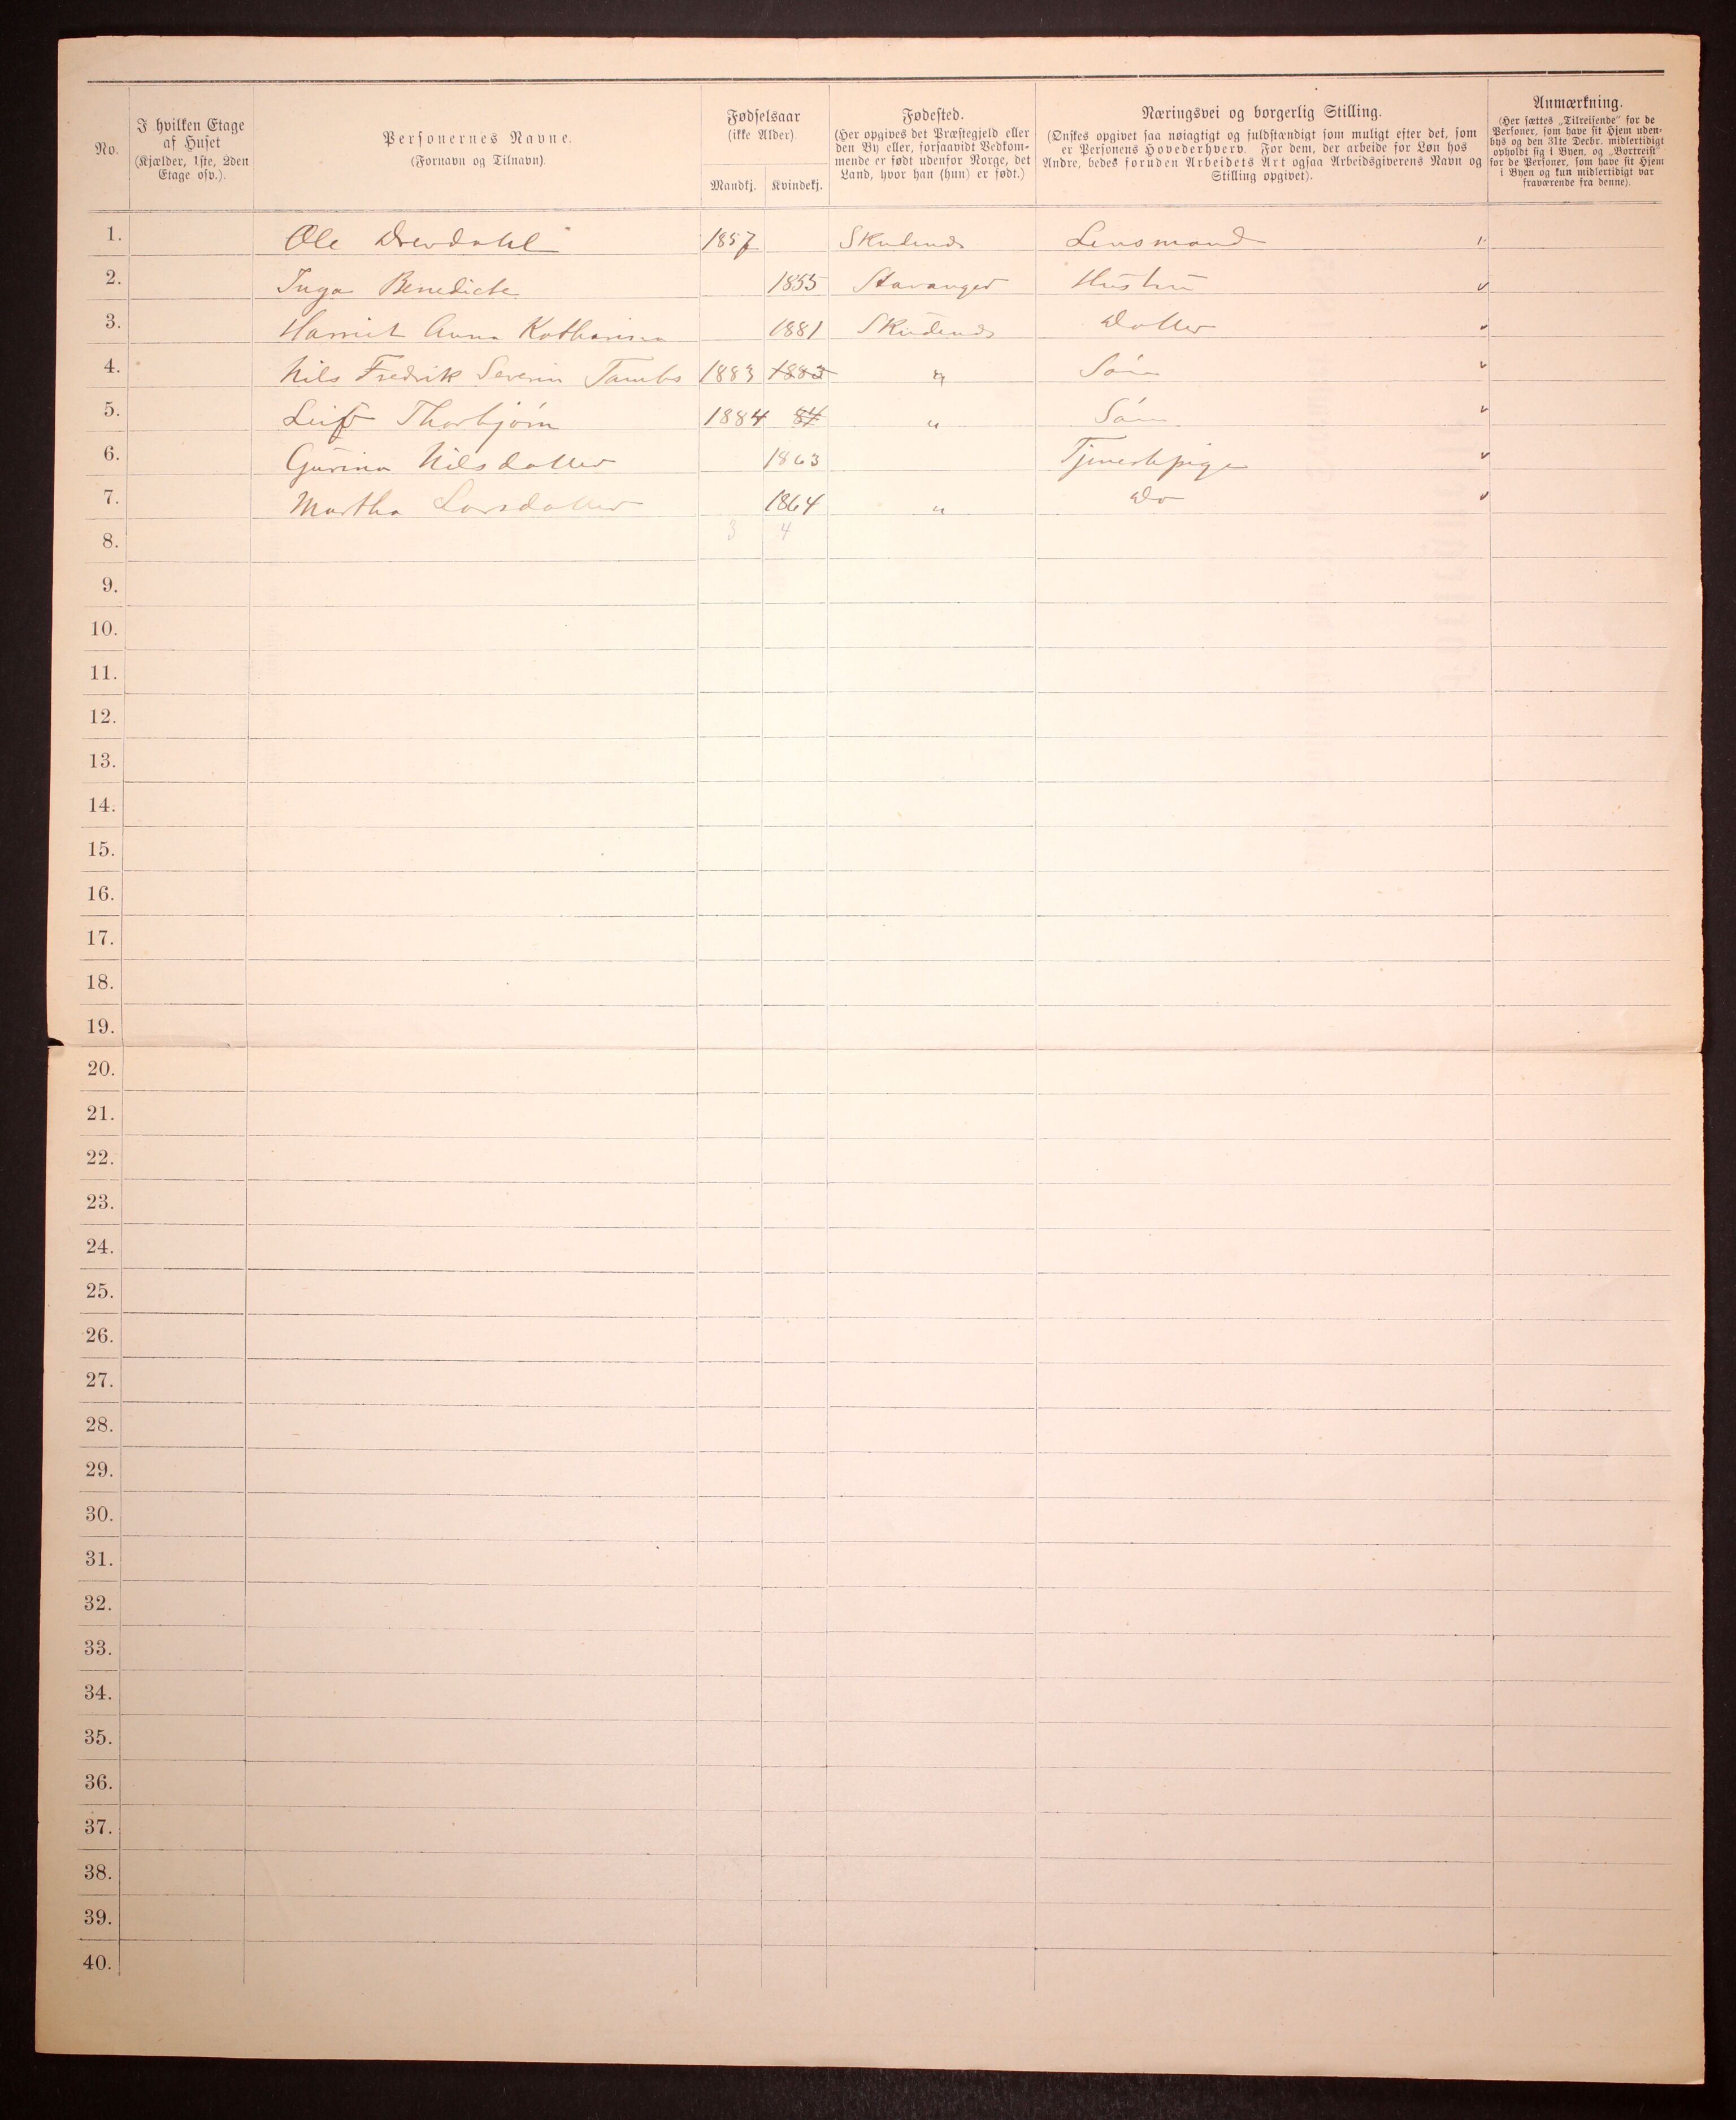 No.
I hvilken Etage
af Huset
(Kjælder, 1ste, 2den
Etage osv.).
Personernes Navne.
(Fornavn og Tilnavn).
Fødselsaar
(ikke Alder).
Mandkj. Kvindekj.
Fødested.
(Her opgives det Præstegjeld eller
den By eller, forsaavidt Vedkom-
mende er født udenfor Norge, det
Land, hvor han (hun) er født.)
Næringsvei og borgerlig Stilling.
(Ønskes opgivet saa nøiagtigt og fuldstændigt som muligt efter det, som
er Personens Hovederhverv. For dem, der arbeide for Løn hos
Andre, bedes foruden Arbeidets Art ogsaa Arbeidsgiverens Navn og
Stilling opgivet).
Anmærkning.
(Her sættes „Tilreisende" for de
Personer, som have sit Hjem uden-
bys og den 31te Decbr. midlertidigt
opholdt sig i Byen, og „Bortreist"
for de Personer, som have sit Hjem
i Byen og kun midlertidigt var
fraværende fra denne).
1. Ole 1857 Skudends Lensmand
2. Inga Benedicte 1855 Stavanger Hustru
3. Harriet Anna Katharina 1881 Skudends Datter
4. Nils Fredrik Severin Tambs 1883 1883 " Søn
5. Leif Thorbjørn 1884 84 " Søn
6. Gurina Nilsdatter 1863 Tjenestepige
7. Martha Larsdatter 1864 " Do
3 4
8.
9.
10.
11.
12.
13.
14.
15.
16.
17.
18.
19.
20.
21.
22.
23.
24.
25.
26.
27.
28.
29.
30.
31.
32.
33.
34.
35.
36.
37.
38.
39.
40.